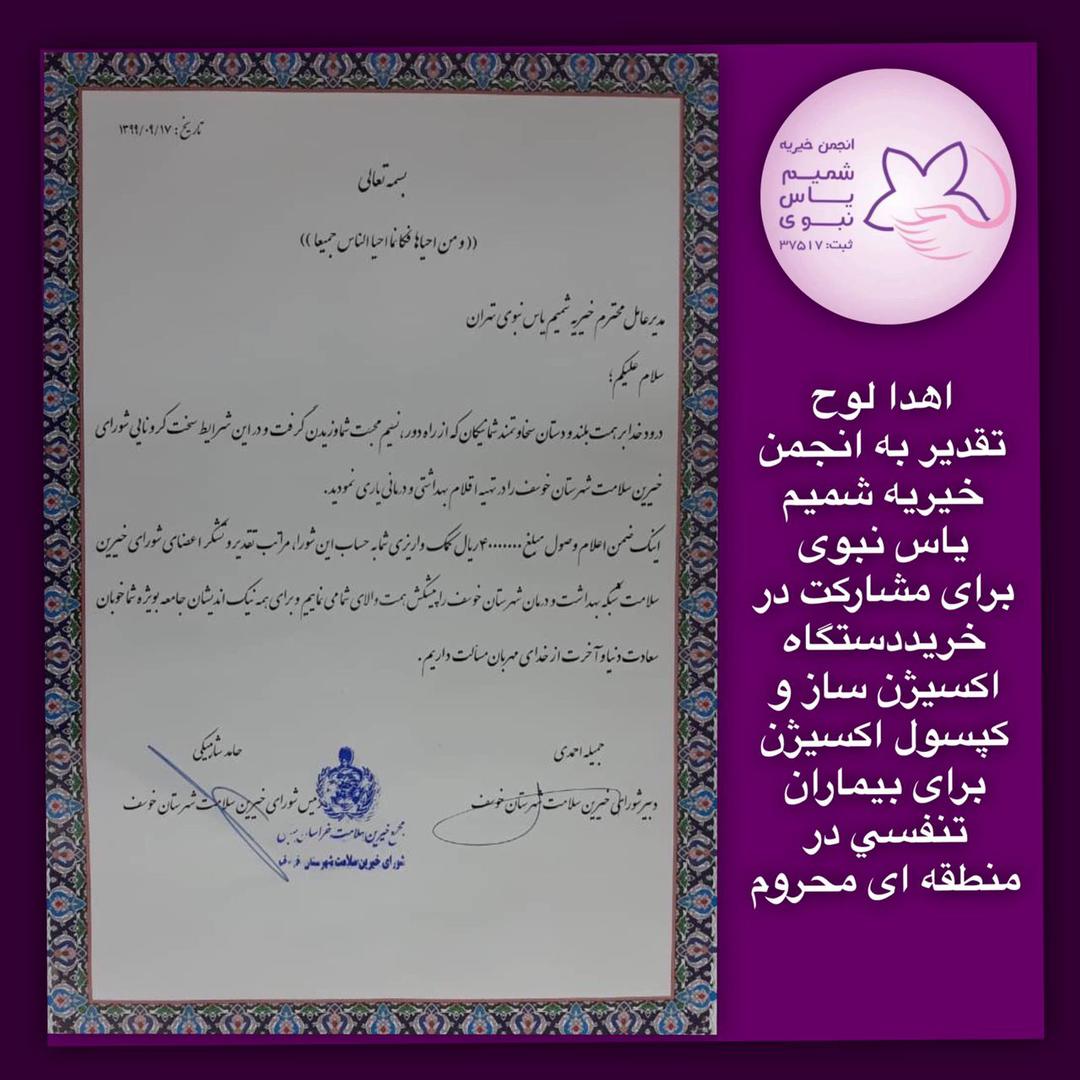 تاریخ: ۱۳۹۹/۰۹/۱۷
بسمه تعالی
((ومن احیاها فکانما احیا الناس جمیعا))
مدیرعامل محترم خیریه شمیم یاس نبوی تهران
سلام علیکم؛
درود خدا بر همت بلند و دستان سخاوتمند شما نیکان که از راه دور، نسیم محبت شما وزیدن گرفت و در این شرایط سخت کرونایی شورای
خیرین سلامت شهرستان خوسف را در تهیه اقلام بهداشتی و درمانی یاری نمودید.
اینک ضمن اعلام وصول مبلغ ۴۰۰۰۰۰۰۰ ریال کمک واریزی شما به حساب این شورا، مراتب تقدیر و تشکر اعضای شورای خیرین
سلامت شبکه بهداشت و درمان شهرستان خوسف را پیشکش همت والای شما می نماییم و برای همه نیک اندیشان جامعه بویژه شما خوبان
سعادت دنیا و آخرت از خدای مهربان مسألت داریم.
جمیله احمدی
دبیر شورای خیرین سلامت شهرستان خوسف
حامد
رئیس شورای خیرین سلامت شهرستان خوسف
مجمع خیرین سلامت خراسان
شورای خیرین سلامت شهرستان
انجمن خیریه
شمیم
یاس
نبوی
ثبت: ۳۷۵۱۷
اهدا لوح
تقدیر به انجمن
خیریه شمیم
یاس نبوی
برای مشارکت در
خریددستگاه
اکسیژن ساز و
کپسول اکسیژن
برای بیماران
تنفسي در
منطقه ای محروم